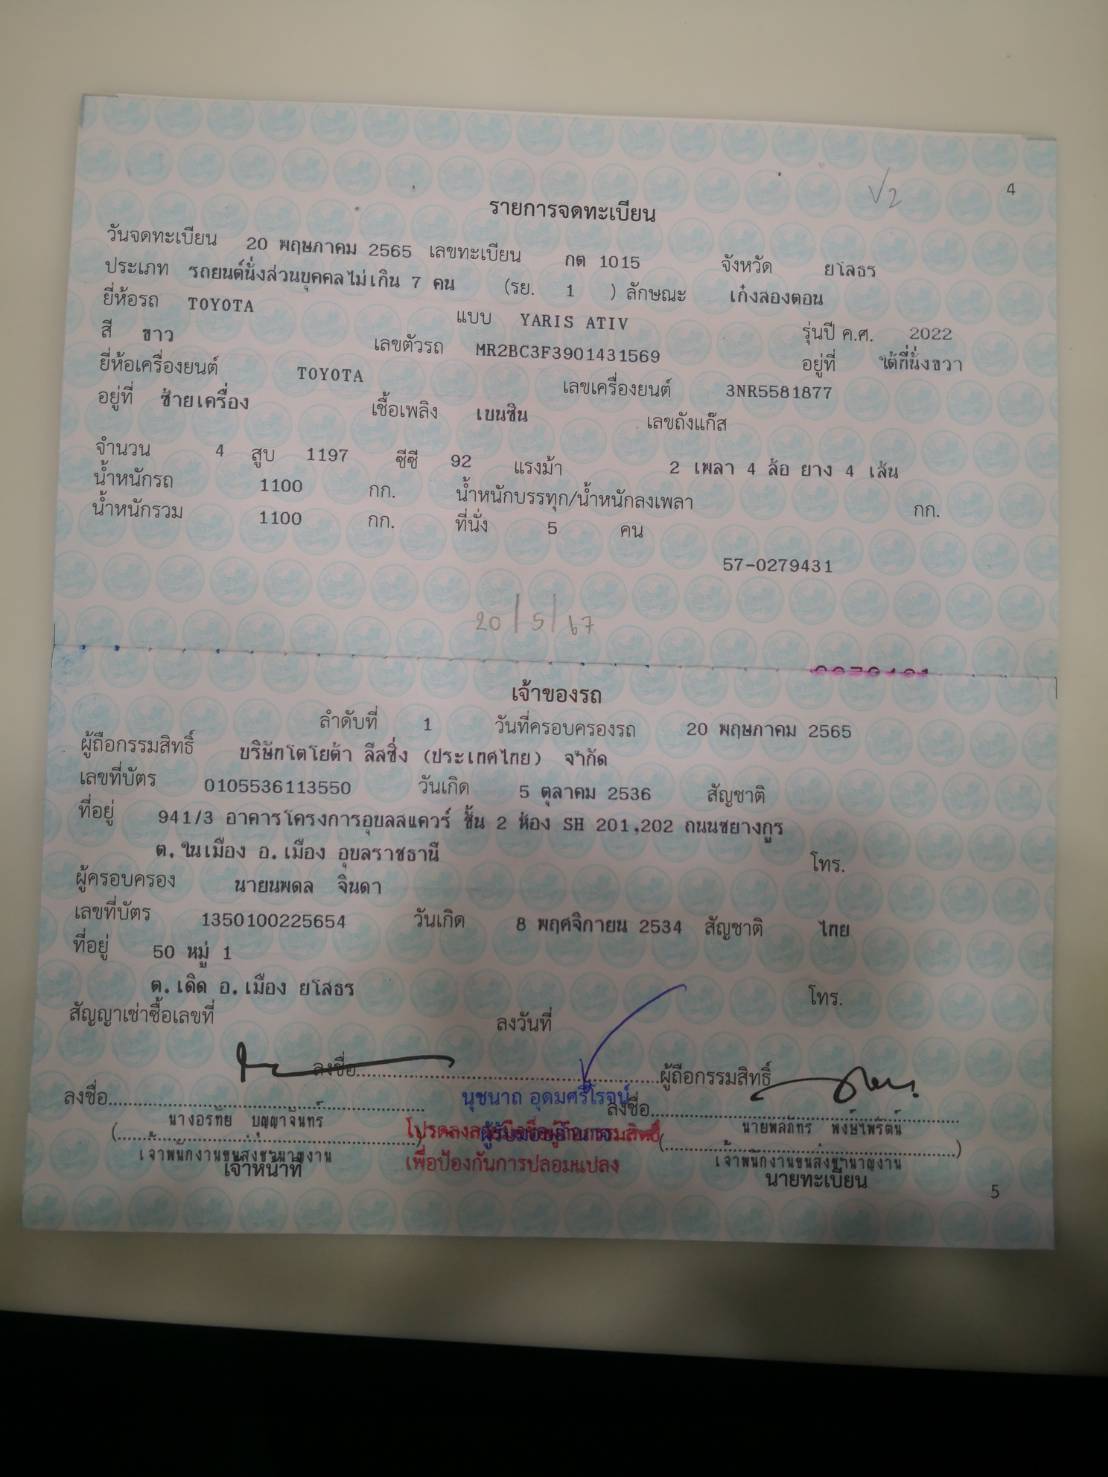 √2
4
รายการจดทะเบียน
วันจดทะเบียน 20 พฤษภาคม 2565 เลขทะเบียน กต 1015 จังหวัด ยโสธร
ประเภท รถยนต์นั่งส่วนบุคคลไม่เกิน 7 คน (รย. 1 ) ลักษณะ เก๋งสองตอน
ยี่ห้อรถ TOYOTA แบบ YARIS ATIV รุ่นปี ค.ศ. 2022
สี ขาว เลขตัวรถ MR2BC3F3901431569 อยู่ที่ ใต้ที่นั่งขวา
ยี่ห้อเครื่องยนต์ TOYOTA เลขเครื่องยนต์ 3NR5581877
อยู่ที่ ซ้ายเครื่อง เชื้อเพลิง เบนซิน เลขถังแก๊ส
จำนวน 4 สูบ 1197 ซีซี 92 แรงม้า 2 เพลา 4 ล้อ ยาง 4 เส้น
น้ำหนักรถ 1100 กก. น้ำหนักบรรทุก/น้ำหนักลงเพลา กก.
น้ำหนักรวม 1100 กก. ที่นั่ง 5 คน
57-0279431
20/5/67
เจ้าของรถ
ลำดับที่ 1 วันที่ครอบครองรถ 20 พฤษภาคม 2565
ผู้ถือกรรมสิทธิ์ บริษัทโตโยต้า ลีสซิ่ง (ประเทศไทย) จำกัด
เลขที่บัตร 0105536113550 วันเกิด 5 ตุลาคม 2536 สัญชาติ
ที่อยู่ 941/3 อาคารโครงการอุบลสแควร์ ชั้น 2 ห้อง SH 201,202 ถนนชยางกูร
ต.ในเมือง อ.เมือง อุบลราชธานี โทร.
ผู้ครอบครอง นายนพดล จินดา
เลขที่บัตร 1350100225654 วันเกิด 8 พฤศจิกายน 2534 สัญชาติ ไทย
ที่อยู่ 50 หมู่ 1
ต.เดิด อ.เมือง ยโสธร โทร.
สัญญาเช่าซื้อเลขที่ ลงวันที่
ลงชื่อ ผู้ถือกรรมสิทธิ์
นุชนาถ อุดมศรีไรจน์
ลงชื่อ ลงชื่อ
นางอรทัย บุญาจันทร์ นายพลภัทร พงษ์ไพรัตน์
เจ้าพนักงานขนส่งชำนาญงาน เจ้าพนักงานขนส่งชำนาญงาน
เจ้าหน้าที่ นายทะเบียน
เพื่อป้องกันการปลอมแปลง
5